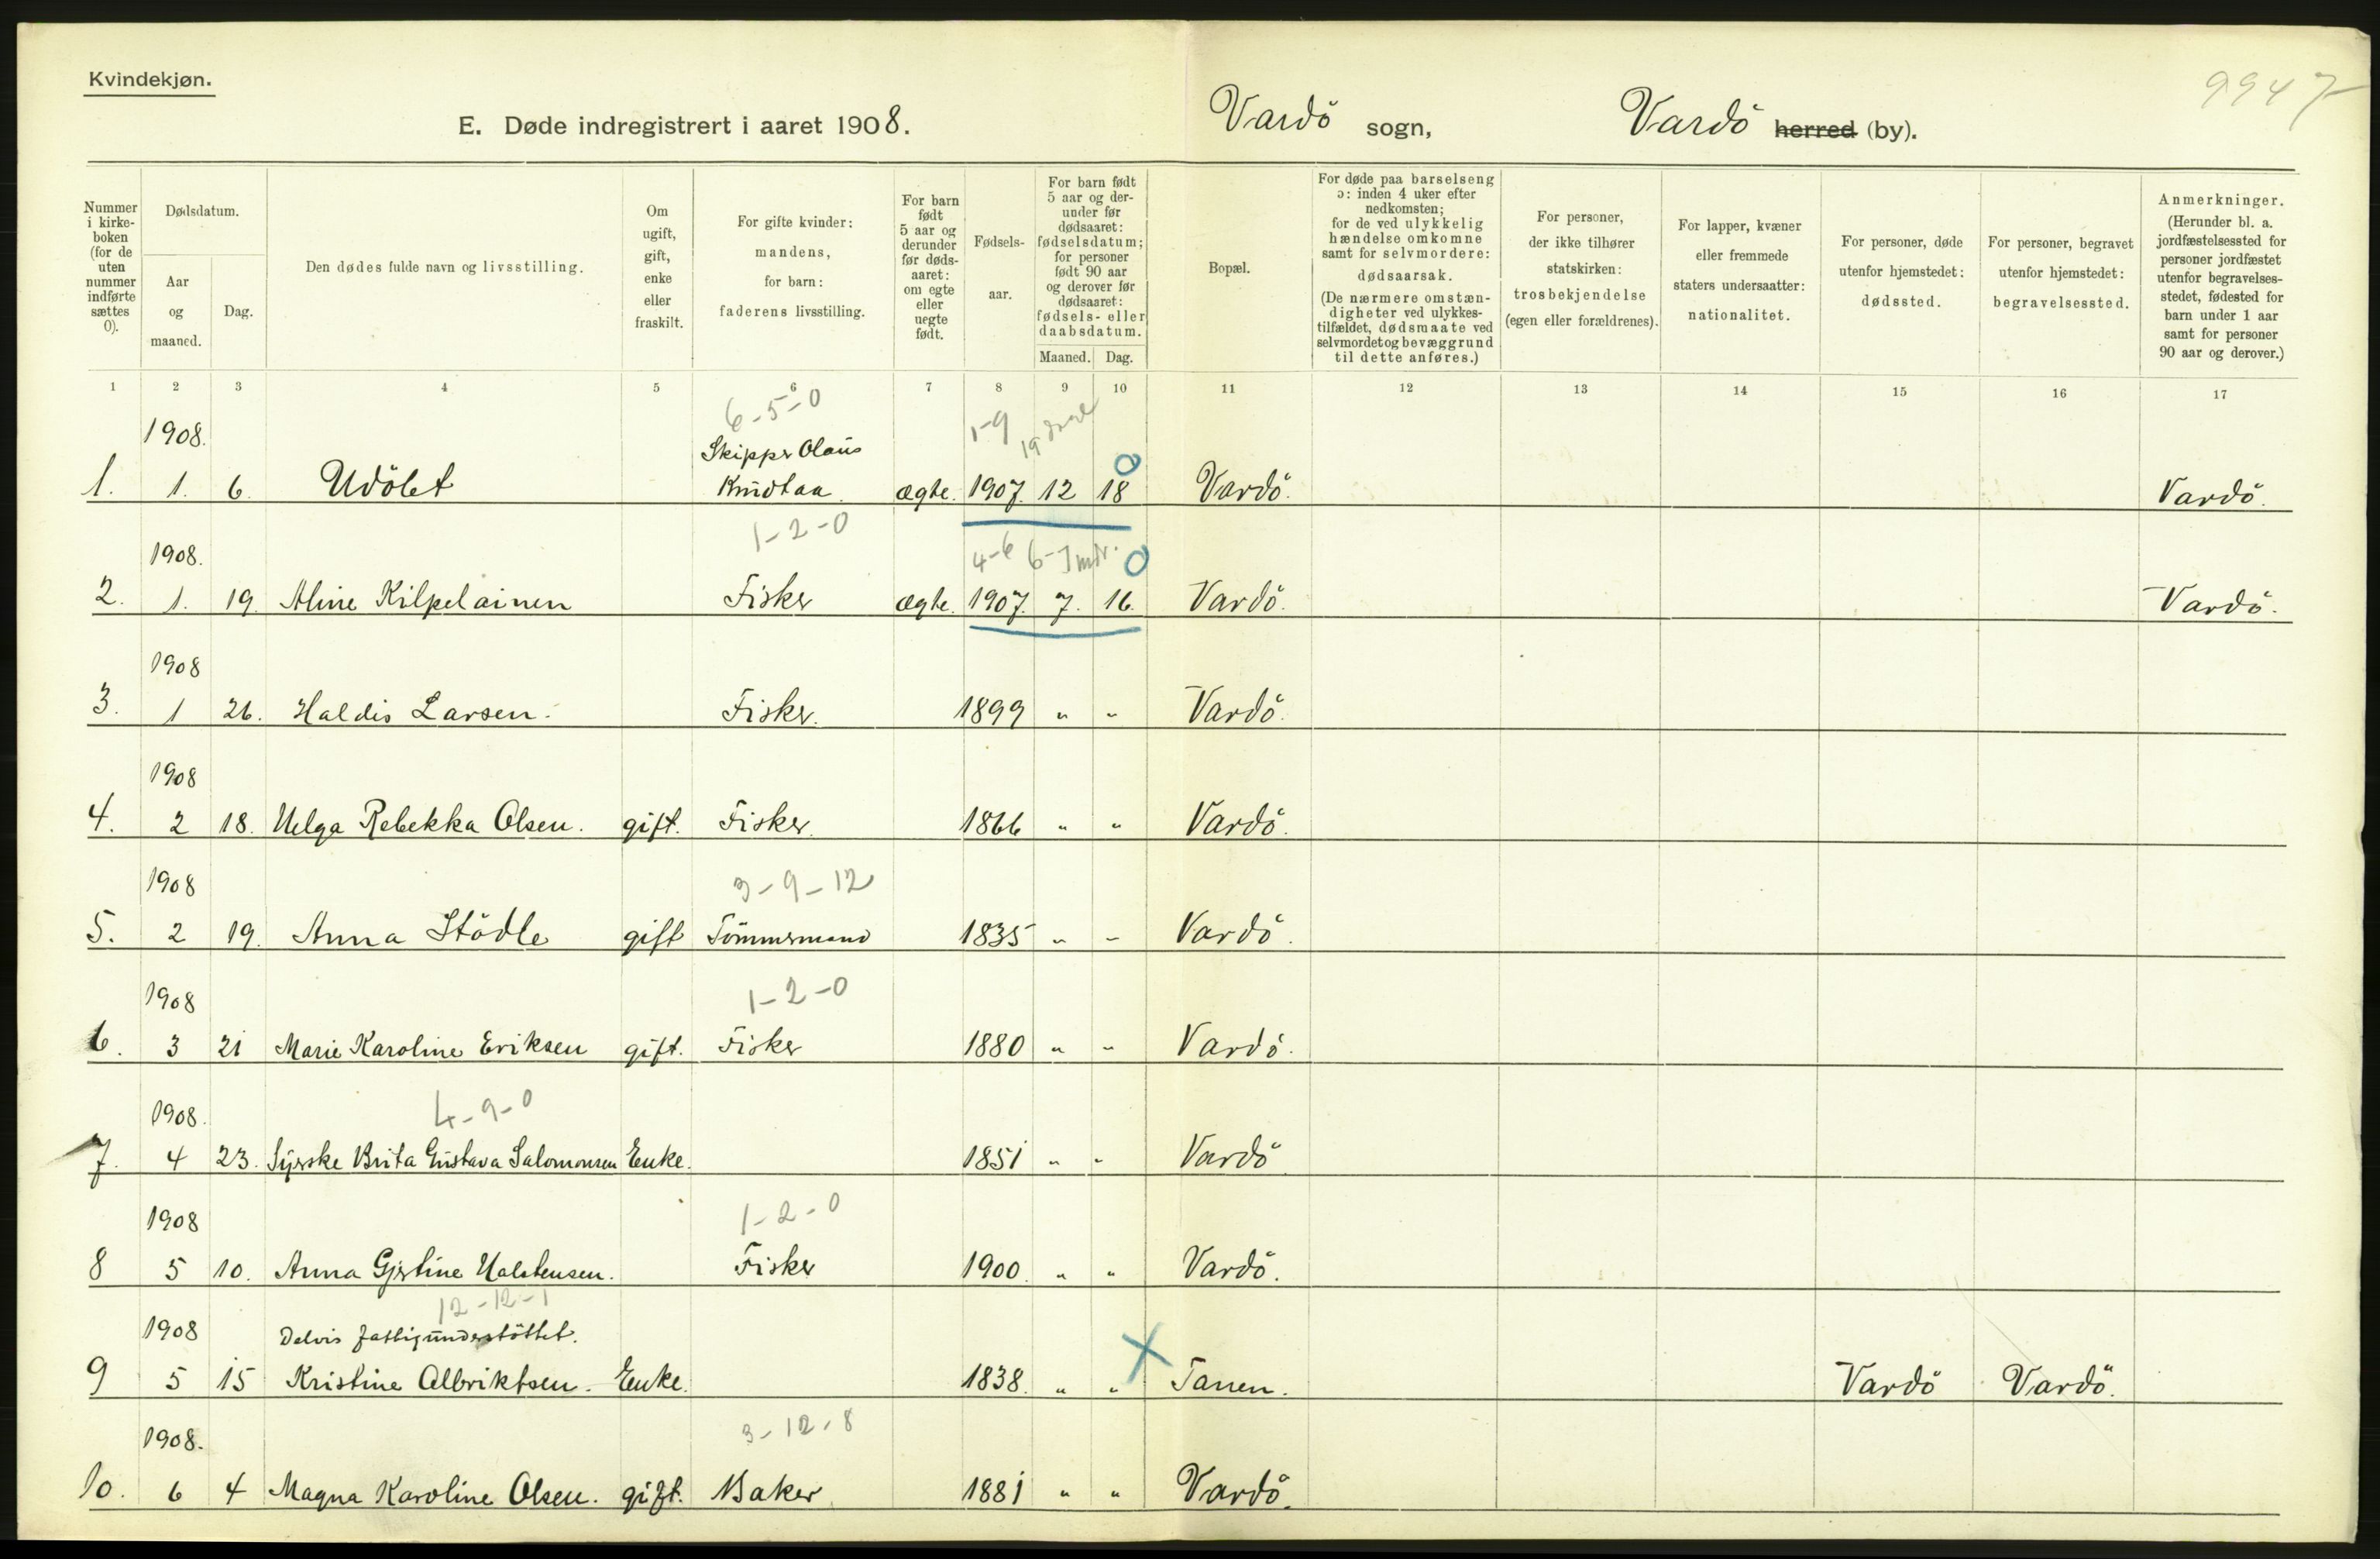 Kvindekjøn.
9947
E. Døde indregistrert i aaret 1908.
Vardö sogn, Vardö herred (by).
Nummer i kirkeboken (for de uten nummer indførte sættes 0).
Dødsdatum.
Aar og maaned.
Dag.
Den dødes fulde navn og livsstilling.
Om ugift, gift, enke eller fraskilt.
For gifte kvinder: mandens, for barn: faderens livsstilling.
For barn født 5 aar og derunder før dødsaaret: om egte eller uegte født.
Fødselsaar.
For barn født 5 aar og derunder før dødsaaret: fødselsdatum; for personer født 90 aar og derover før dødsaaret: fødsels- eller daabsdatum.
Maaned. Dag.
Bopæl.
For døde paa barselseng ɔ: inden 4 uker efter nedkomsten; for de ved ulykkelig hændelse omkomne samt for selvmordere: dødsaarsak. (De nærmere omstændigheter ved ulykkestilfældet, dødsmaate ved selvmordet og bevæggrund til dette anføres.)
For personer, der ikke tilhører statskirken: trosbekjendelse (egen eller forældrenes).
For lapper, kvæner eller fremmede staters undersaatter: nationalitet.
For personer, døde utenfor hjemstedet: dødssted.
For personer, begravet utenfor hjemstedet: begravelsessted.
Anmerkninger. (Herunder bl. a. jordfæstelsessted for personer jordfæstet utenfor begravelsesstedet, fødested for barn under 1 aar samt for personer 90 aar og derover.)
1 2 3 4 5 6 7 8 9 10 11 12 13 14 15 16 17
6-5-0
1908. Skipper Olaus 1-9 19 0
1. 1. 6. Udöbt Knudtaa. ægte. 1907. 12 18 Vardö. Vardö.
1-2-0
1908. 4-6 6-7 mdr. 0
2. 1. 19. Aline Kilpelainen Fisker ægte. 1907. 7. 16. Vardö. Vardö.
1908
3. 1 26. Haldis Larsen. Fisker. 1899 " " Vardö.
1908
4. 2 18. Helga Rebekka Olsen. gift. Fisker. 1866 " " Vardö.
1908 3-9-12
5. 2 19. Anna Stödle gift Tömmermand 1835 " " Vardö.
1908 1-2-0
6. 3 21 Marie Karoline Eriksen gift. Fisker 1880 " " Vardö.
1908. 4-9-0
7. 4 23. Syerske Brita Gustava Salomonsen Enke. 1851 " " Vardö
1908 1-2-0
8 5 10. Anna Gjertine Halstensen. Fisker 1900. " " Vardö.
12-12-1
1908 Delvis fattigunderstöttet. X
9 5 15 Kristine Albriktsen. Enke. 1838. " " Tanen. Vardö Vardö.
1908. 3-12-8
10. 6 4 Magna Karoline Olsen. gift. Baker 1881 " " Vardö.